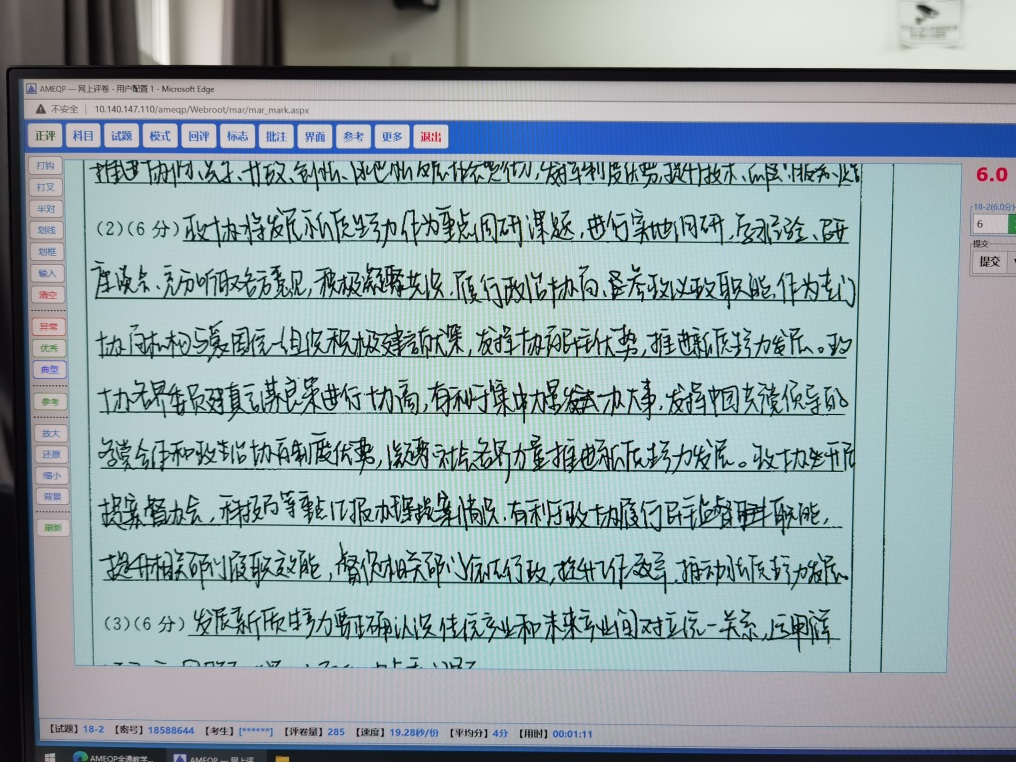 AMEQP — 网上评卷 - 用户配置 1 - Microsoft Edge
不安全 10.140.147.110/ameqp/Webroot/mar/mar_mark.aspx
正评 科目 试题 模式 回评 标志 批注 界面 参考 更多 退出
打钩
打叉
半对
划线
划框
输入
清空
异常
优秀
典型
参考
放大
还原
缩小
背景
刷新
(2)(6分)政协将发展新质生产力作为重点调研课题,进行实地调研,
座谈会、充分听取各方意见,积极凝聚共识,履行政治协商、参政议政职能,作为专门
协商机构与爱国统一组织积极建言献策,发挥协商民主优势,推进新质生产力发展。政
协各界委员对真言谋良策进行协商,有利于集中力量办大事,发挥中国共产党领导的
多党合作和政治协商制度优势,凝聚社会各界力量推进新质生产力发展。政协召开
提案督办会,科技局等重点汇报办理提案情况,有利于政协履行民主监督职能,
提升相关部门履职效能,督促相关部门依法行政,提升工作效率,推动新质生产力发展。
(3)(6分)发展新质生产力要正确认识传统产业和未来产业间对立统一关系,运用辩
6.0
18-2(6.0分)
6
提交
提交
【试题】18-2 【密号】18588644 【考生】[******] 【评卷量】285 【速度】19.28秒/份 【平均分】4分 【用时】00:01:11